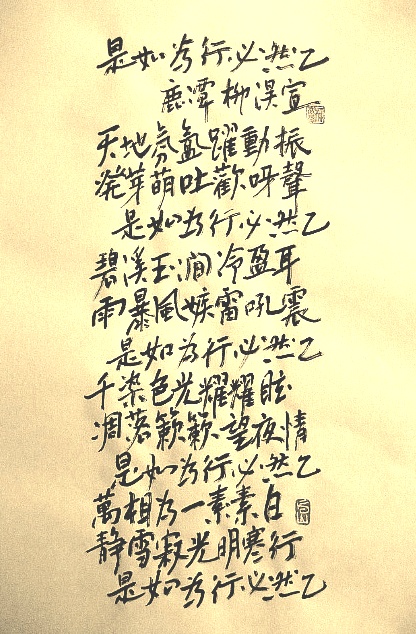 是如為行必然乙
鹿潭 柳淏宣
天地氛氳躍動振
発芽萌吐歡呀聲
是如為行必然乙
碧溪玉澗冷盈耳
雨暴風嫉雷吼震
是如為行必然乙
千染色光耀耀眩
凋落籟籟望夜情
是如為行必然乙
萬相為一素素白
静雪寂光明寒行
是如為行必然乙